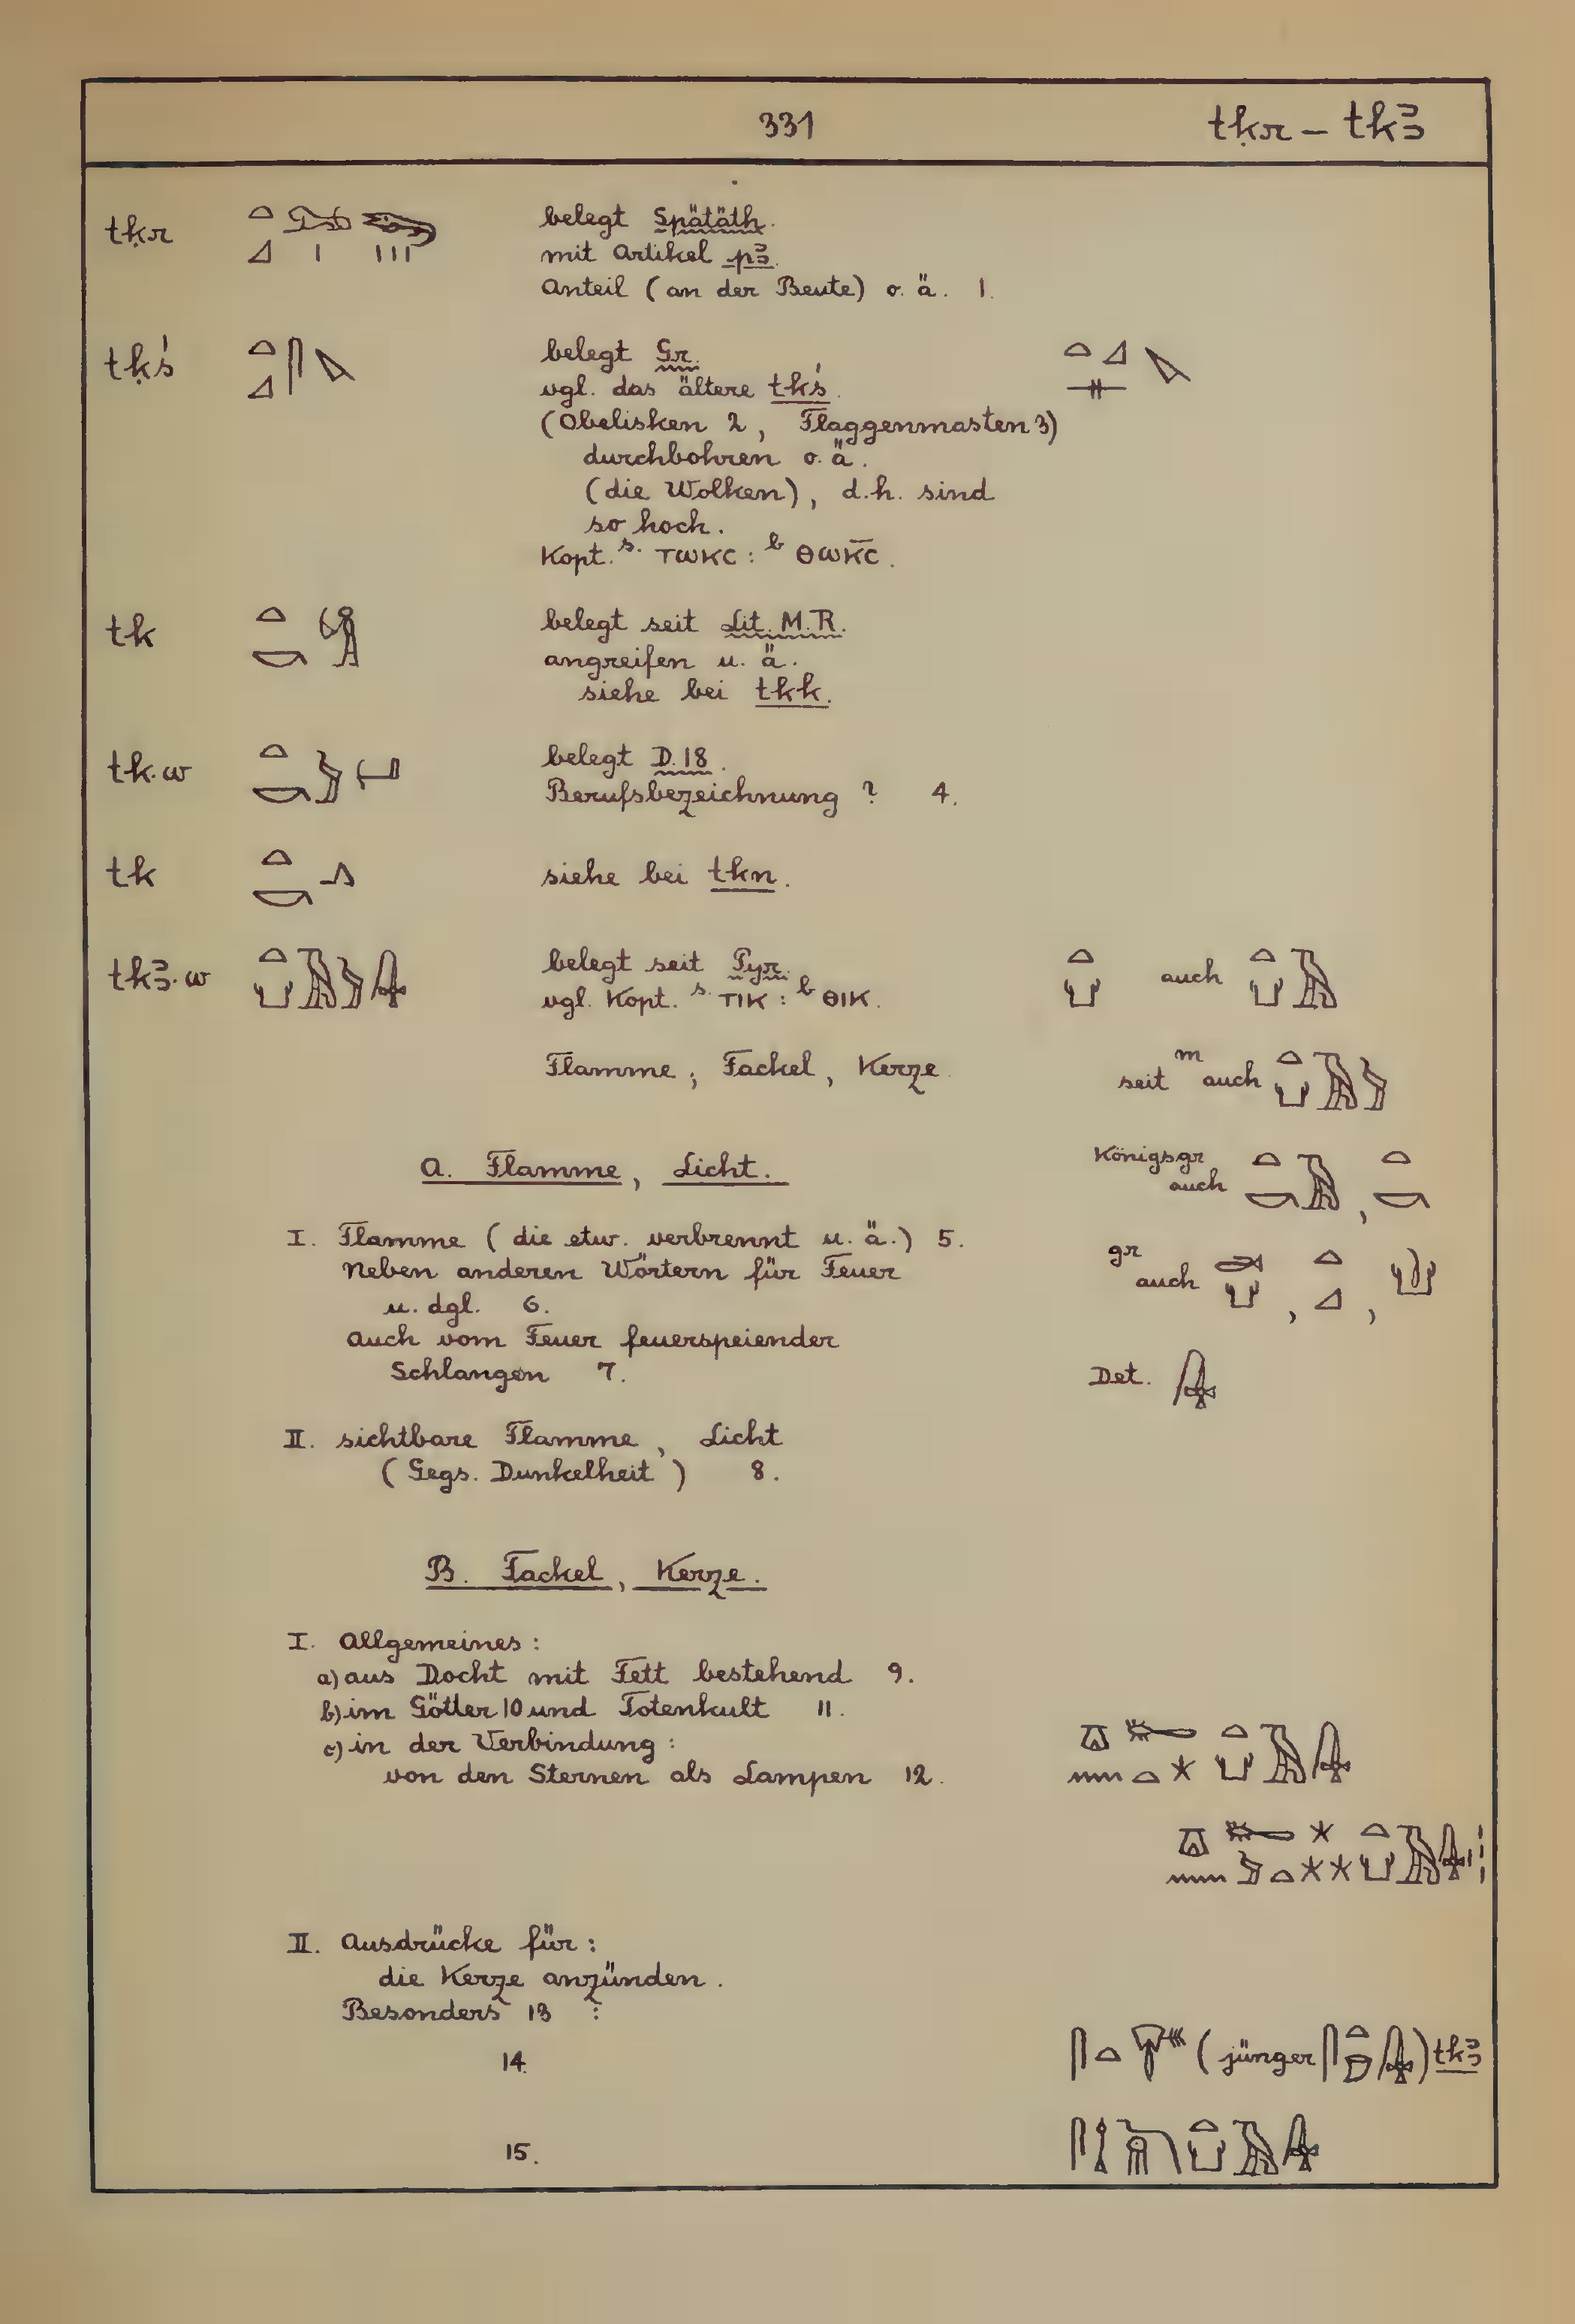 331
tḳr – tkꜣ
tḳr
belegt Spätäth.
mit Artikel pꜣ.
Anteil (an der Beute) o. ä. 1.
tḳś
belegt Gr.
vgl. das ältere tḳś.
(Obelisken 2, Flaggenmasten 3)
durchbohren o. ä.
(die Wolken), d.h. sind
so hoch.
Kopt. s. ⲧⲱⲕⲥ : b ⲑⲱⲕ̅ⲥ̅.
tk
belegt seit Lit. M.R.
angreifen u. ä.
siehe bei tkk.
tk·w
belegt D. 18.
Berufsbezeichnung ? 4.
tk
siehe bei tkn.
tkꜣ·w
belegt seit Pyr.
vgl. Kopt. s. ⲧⲓⲕ : b ⲑⲓⲕ.
auch
Flamme; Fackel, Kerze.
seit m auch
A. Flamme, Licht.
Königsgr
auch
I. Flamme (die etw. verbrennt u. ä.) 5.
Neben anderen Wörtern für Feuer
u. dgl. 6.
gr
auch
Auch vom Feuer feuerspeiender
Schlangen 7.
Det.
II. sichtbare Flamme, Licht
(Gegs. Dunkelheit) 8.
B. Fackel, Kerze.
I. Allgemeines:
a) aus Docht mit Fett bestehend 9.
b) im Götter 10 und Totenkult 11.
c) in der Verbindung:
von den Sternen als Lampen 12.
II. Ausdrücke für:
die Kerze anzünden.
Besonders 13 :
14.
(jünger ) tkꜣ
15.